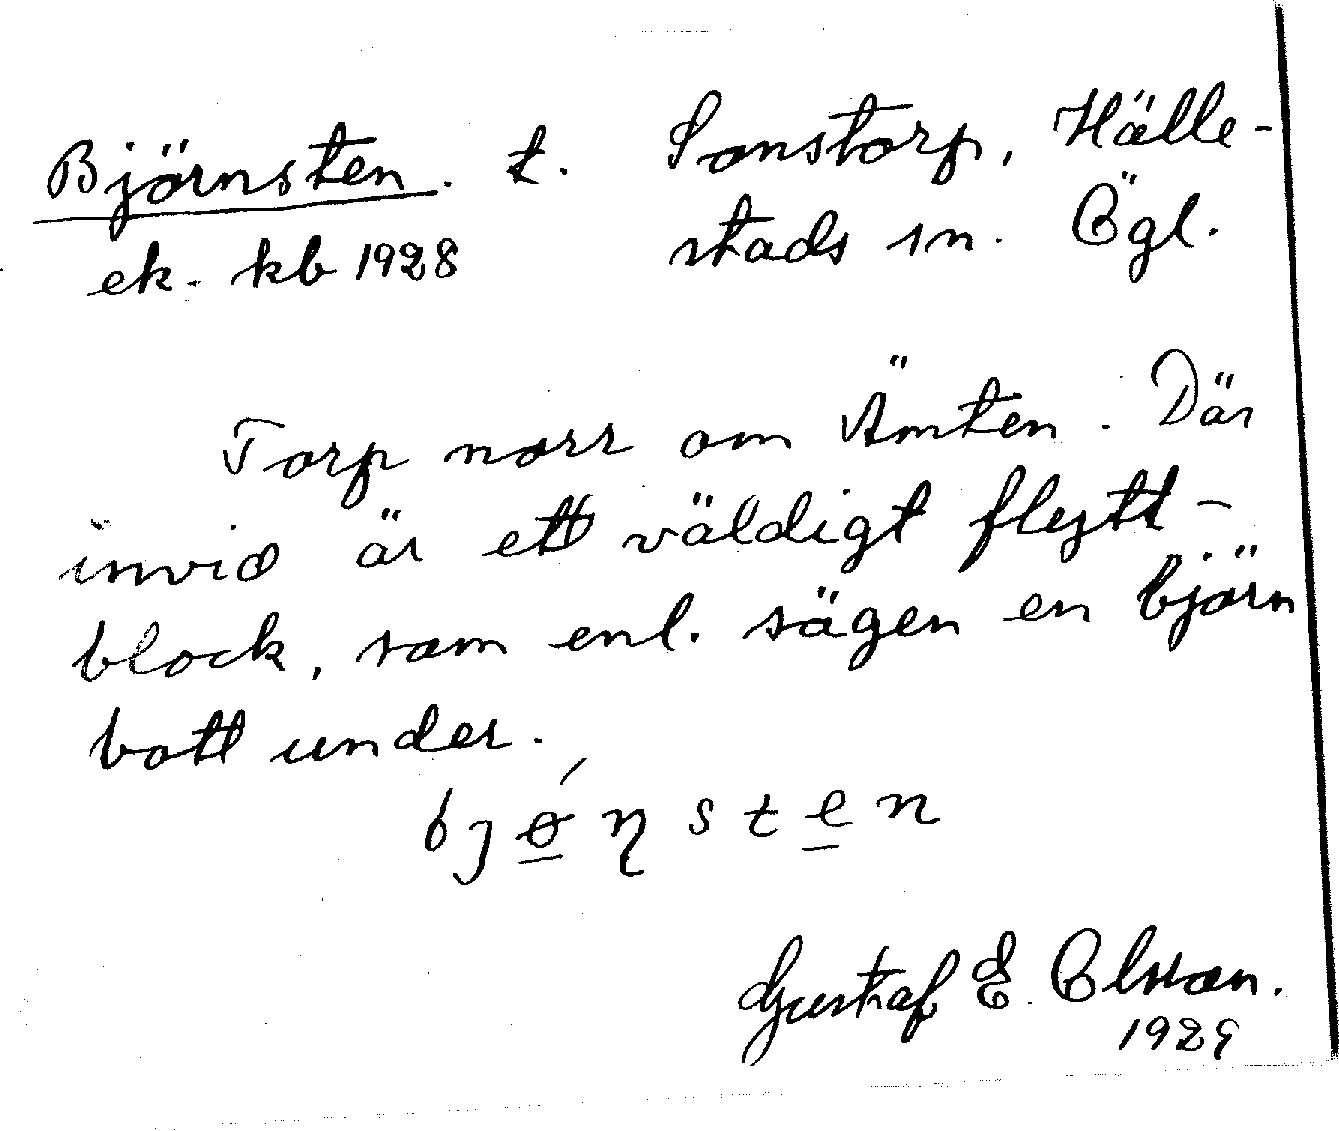 Björnsten. t. Sonstorp, Hälle-
ek. kb 1928 stads sn. Ögl.
Torp norr om Ämten. Där
invid är ett väldigt flytt-
block, som enl. sägen en björn
bott under.
bjǿ̲ηste̲n
Gustaf E. Olsson.
1929